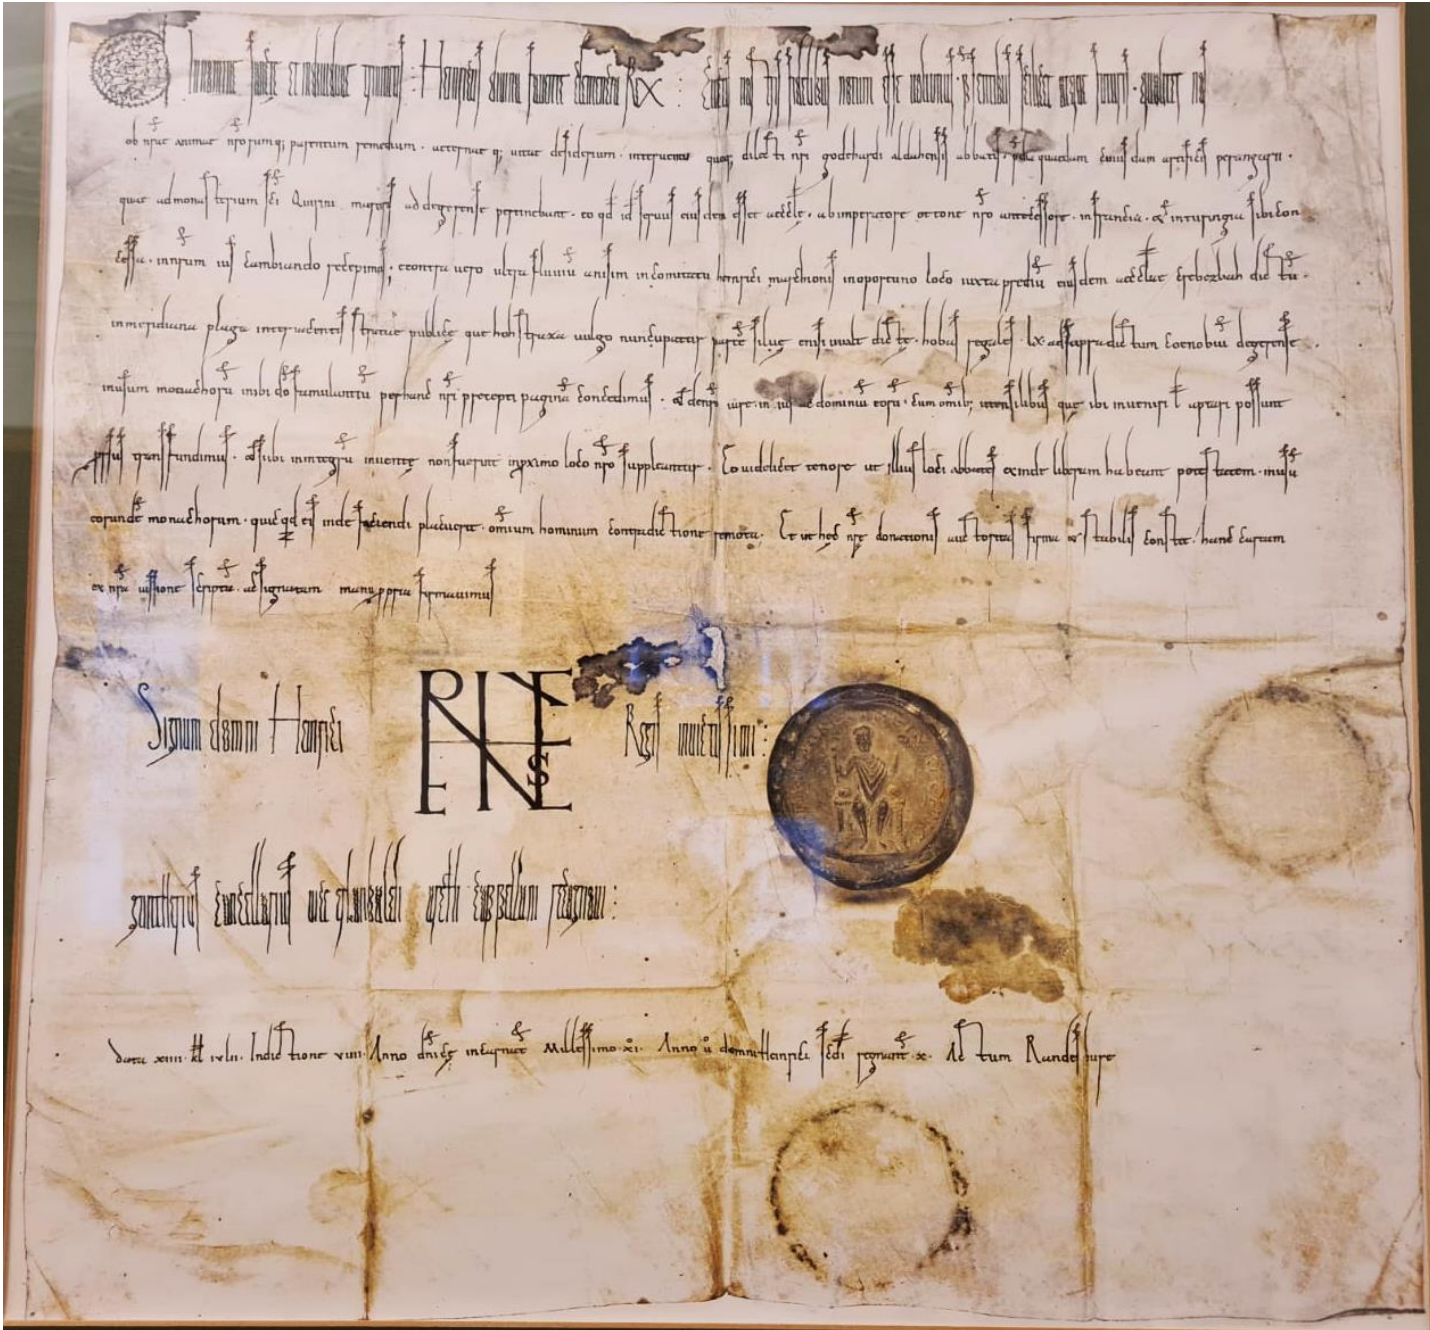 In nomine sancte et individue trinitatis : Heinricus divina favente clementia Rex : notum esse volumus
ob nrae animae nrorumq; parentum remedium . aeternae q; vitae desiderium . interventu quoq; dilecti nri godehardi aldahensis abbatis . praedia quaedam cuiusdam artificis perangeri .
quae ad monasterium sci Quirini martyris ad degerense pertinebant . eo qd id servus eiusdem esset aecclę . ab imperatore ottone nro antecessore . in francia . & in turingia sibi con
cessa . in nrum ius cambiando recepimus , econtra vero ultra fluviu anisim in comitatu heinrici marchionis in oportuno loco iuxta prediu eiusdem aecclae dictu .
in meridiana plaga interiacentis stratae publicę que hohstraza vulgo nuncupatur parte silvę enisi uualt dictę . hobas regales . lx . ad supra dictum coenobiu degerense .
in usum monachoru inibi do famulantiu per hanc nri precepti pagina concedimus . & de nro iure in ius ac dominiu eoru . cum omib; utensilibus quę ibi inveniri l aptari possunt
transfundimus . & si ibi in integru inventę non fuerint in pximo loco nro suppleantur . Eo videlicet tenore ut illius loci abbates exinde liberam habeant potestatem . in usu
eorunde monachorum . quicqd eis inde faciendi placuerit . omium hominum contradictione remota . Et ut hęc nrę donationis auctoritas firma & stabilis constet . hanc cartam
ex nra iussione scripta . ac signatam manu ppria firmavimus
Signum domni Heinrici Regis invictissimi :
guntherius cancellarius vice archi cappellani recognovi :
Data xiiii . kl iulii . Indictione viiii . Anno dnicę incarnat Millessimo xi . Anno u domni Heinrici scdi regnant . x . Actum